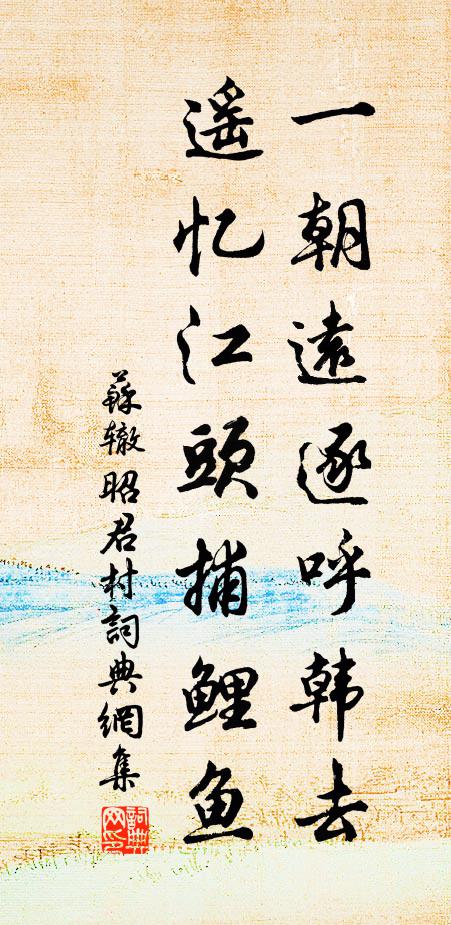 一朝遠逐呼韩去
遥忆江頭捕鲤鱼
蘇辙昭君村詞典網集
詞典網印